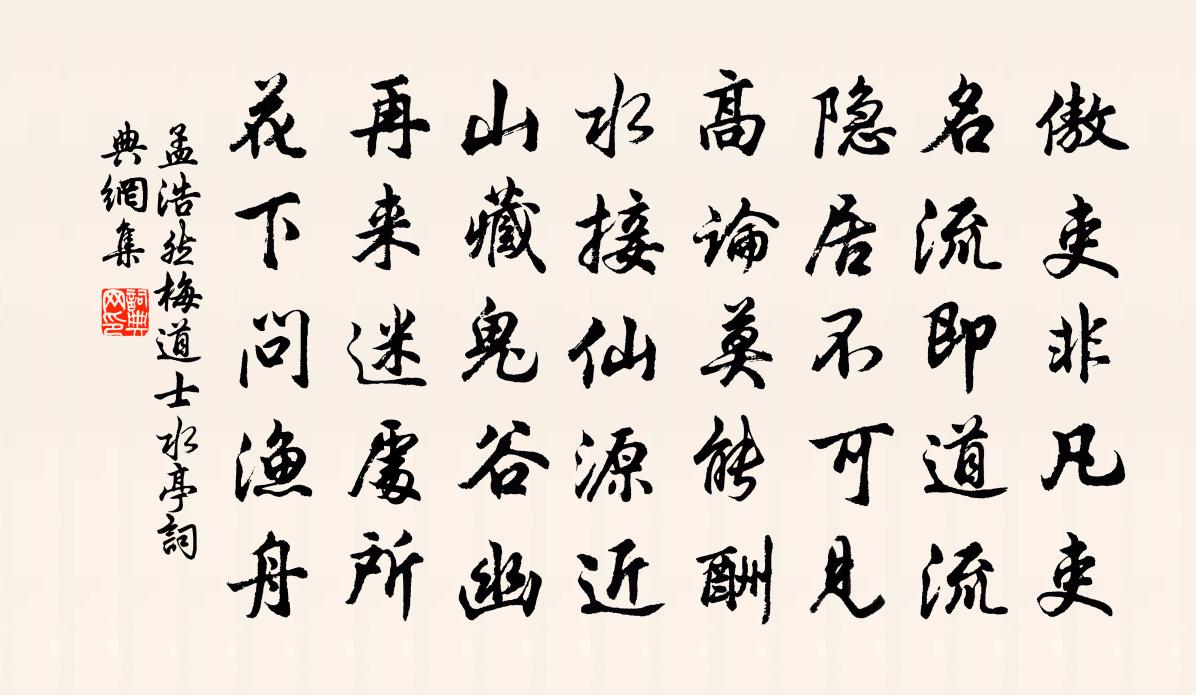 傲吏非凡吏
名流即道流
隐居不可見
高論莫能酬
水接仙源近
山藏鬼谷幽
再来迷處所
花下問漁舟
孟浩然梅道士水亭詞
典網集
詞典
网印